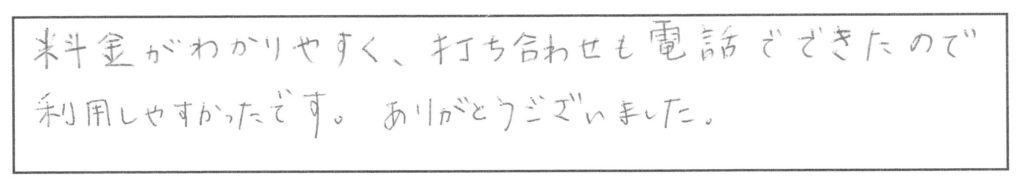 料金がわかりやすく、打ち合わせも電話でできたので
利用しやすかったです。ありがとうございました。